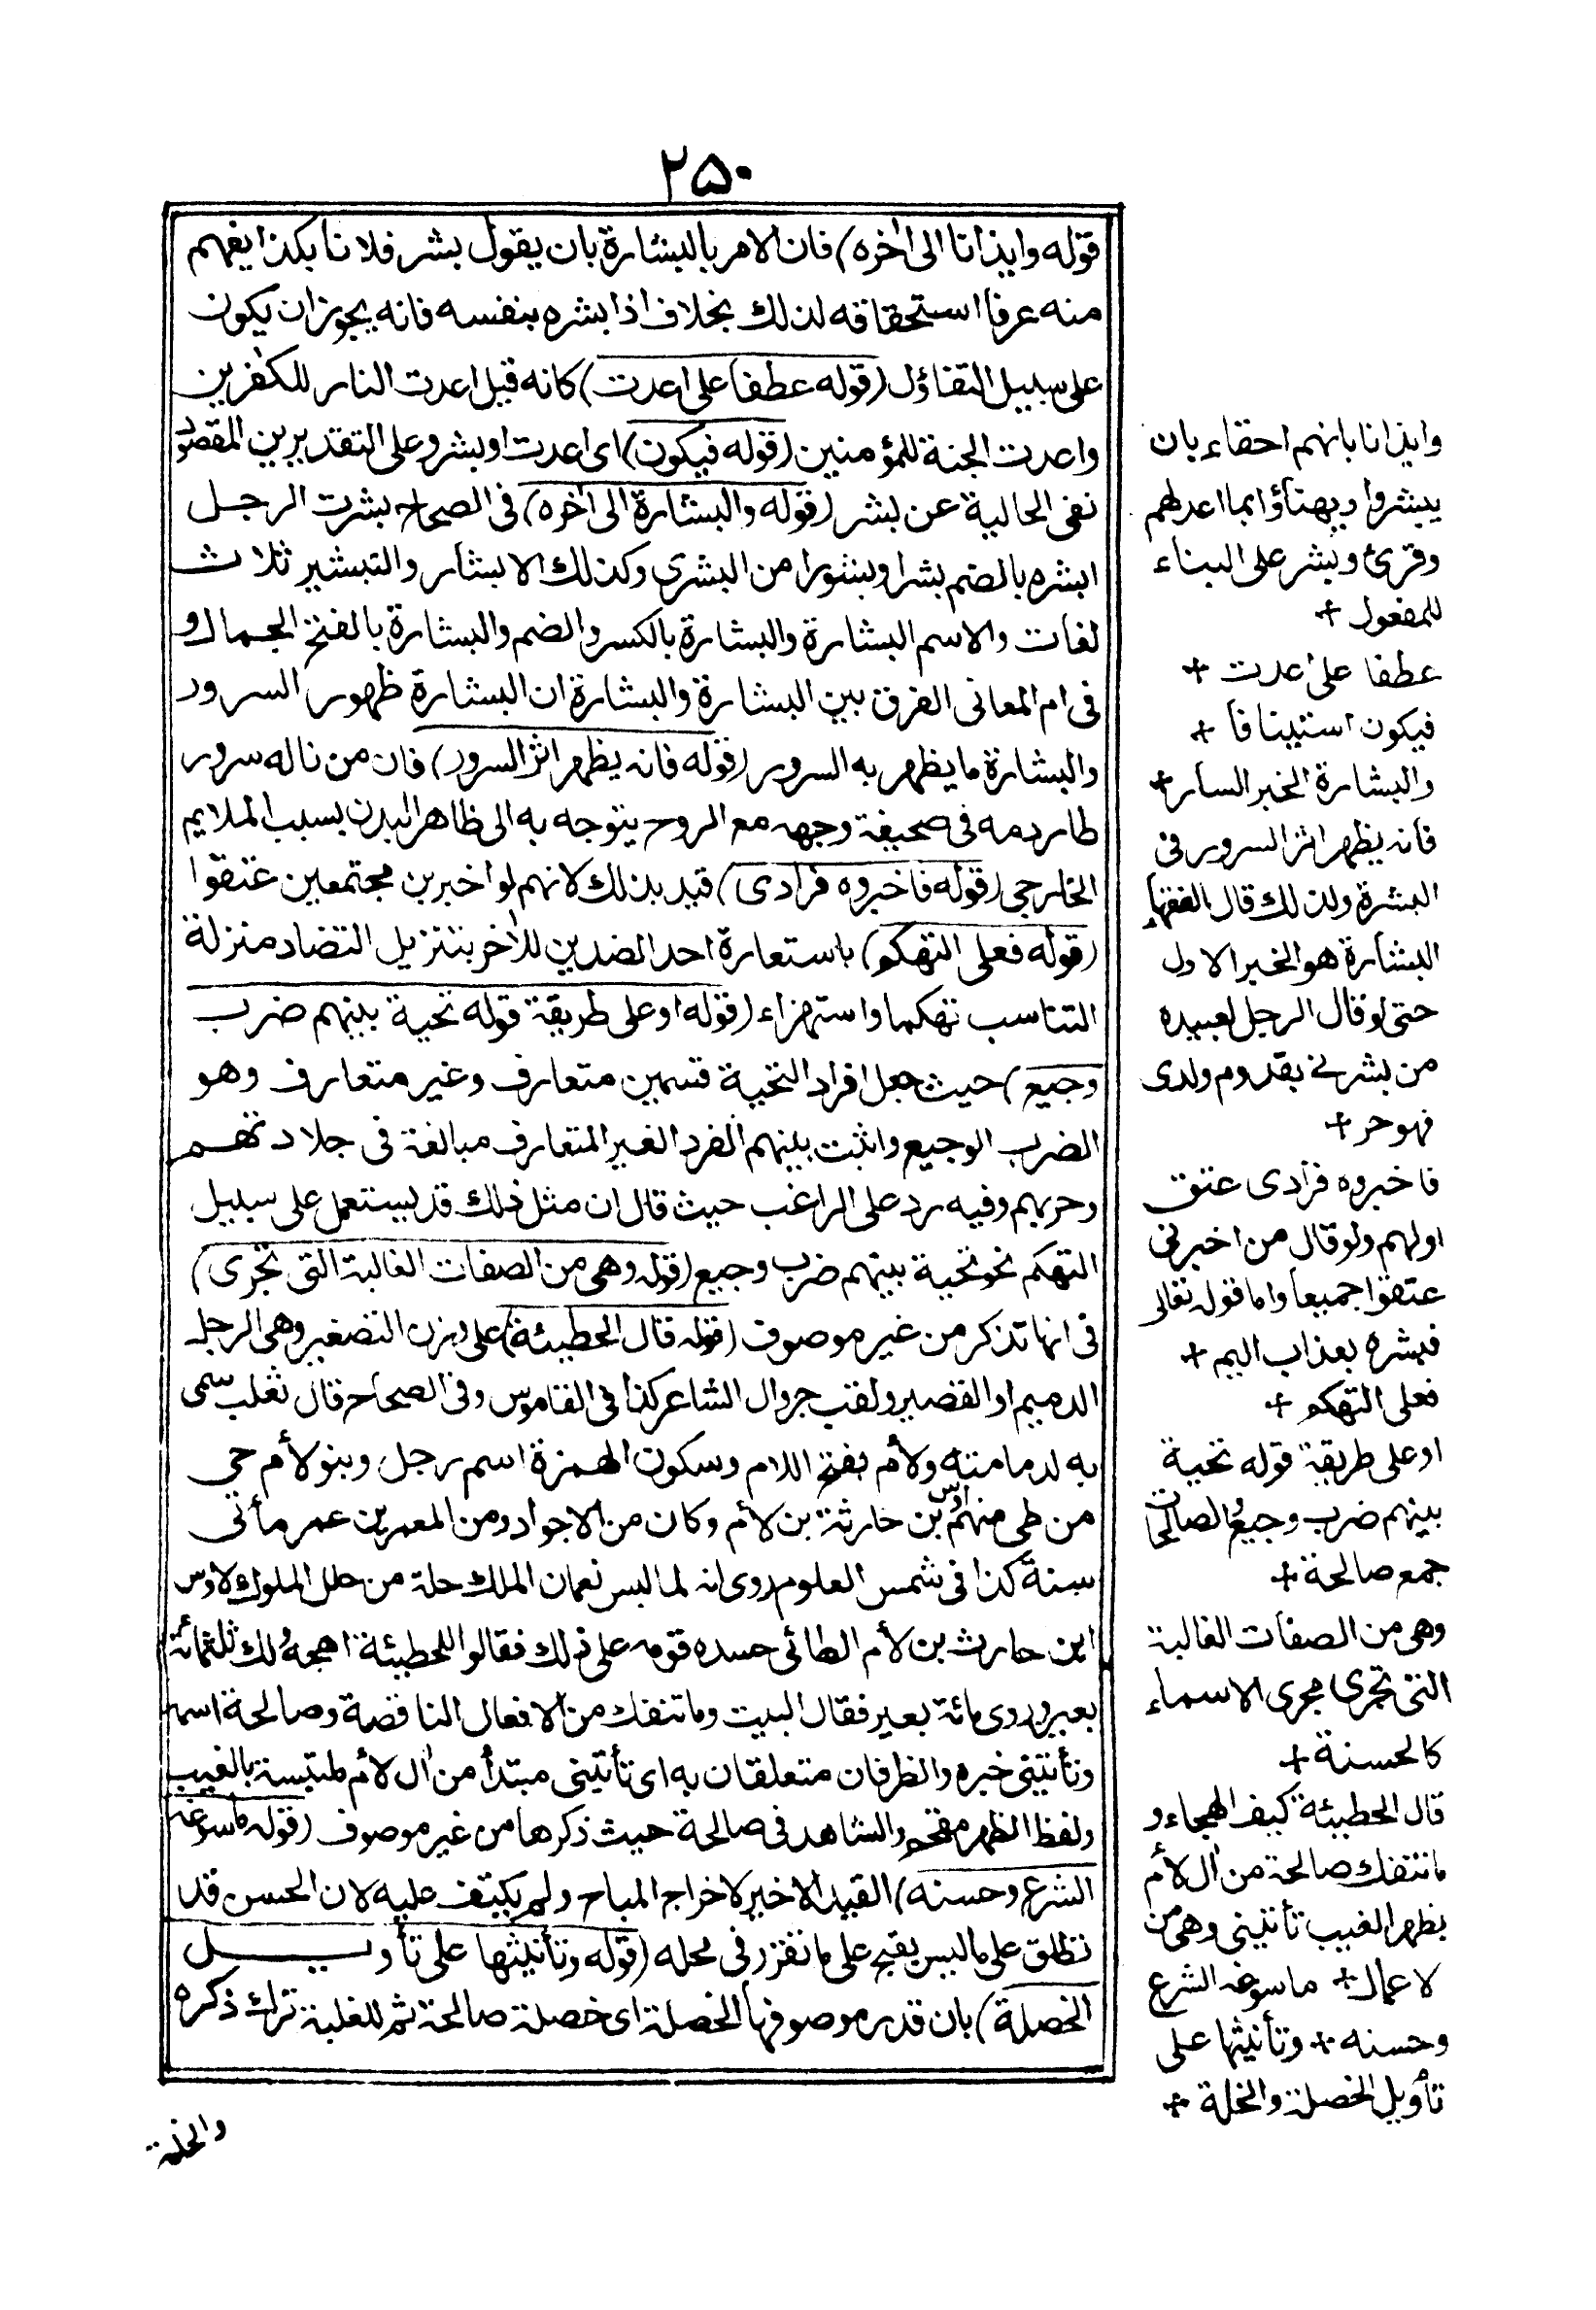 ۲۵۰
قوله وايذانا الى اٰخره) فان الامر بالبشارة بان يقول بشر فلانا بكذا يفهم
منه عرفا استحقاقه لذلك بخلاف اذا بشره بنفسه فانه يجوز ان يكون
على سبيل التفاؤل (قوله عطفا على اعدت) كانه قيل اعدت النار للكٰفرين
واعدت الجنة للمؤمنين (قوله فيكون) اى اعدت او بشر وعلى التقديرين المقصود
نفى الحالية عن بشر (قوله والبشارة الى اٰخره) فى الصحاح بشرت الرجل
ابشره بالضم بشرا وبشورا من البشرى وكذلك الابشار والتبشير ثلاث
لغات والاسم البشارة والبشارة بالكسر والضم والبشارة بالفتح الجمال و
فى ام المعانى الفرق بين البشارة والبشارة ان البشارة ظهور السرور
والبشارة ما يظهر به السرور (قوله فانه يظهر اثر السرور) فان من ناله سرور
طار دمه فى صحيفة وجهه مع الروح يتوجه به الى ظاهر البدن بسبب الملايم
الخارجى (قوله فاخبروه فرادى) قيد بذلك لانهم لو اخبرين مجتمعين عتقوا
(قوله فعلى التهكم) باستعارة احد الضدين للاٰخر بتنزيل التضاد منزلة
التناسب تهكما واستهزاء (قوله او على طريقة قوله تحية بينهم ضرب
وجيع) حيث جعل افراد التحية قسمين متعارف وغير متعارف وهو
الضرب الوجيع واثبت بينهم الفرد الغير المتعارف مبالغة فى جلادتهم
وحربهم وفيه رد على الراغب حيث قال ان مثل ذلك قد يستعمل على سبيل
التهكم نحو تحية بينهم ضرب وجيع (قوله وهى من الصفات الغالبة التى تجرى)
فى انها تذكر من غير موصوف (قوله قال الحطيئة) على وزن التصغير وهى الرجل
الدميم او القصير ولقب جروال الشاعر كذا فى القاموس وفى الصحاح قال ثعلب سمى
به لدمامته ولأم بفتح اللام وسكون الهمزة اسم رجل وبنو لأم حي
من طى منهم اوس بن حارثة بن لأم وكان من الاجواد ومن المعمرين عمر مأتى
سنة كذا فى شمس العلوم روى انه لما البس نعمان الملك حلة من حلل الملوك لاوس
ابن حارث بن لأم الطائى حسده قومه على ذلك فقالوا للحطيئة اهجه ولك ثلثمائة
بعير وروى مائة بعير فقال البيت وما تنفك من الافعال الناقصة وصالحة اسمه
وتأتينى خبره والظرفان متعلقان به اى تأتينى مبتدأ من اٰل لأم ملتبسة بالغيب
ولفظ الظهر مقحم والشاهد فى صالحة حيث ذكرها من غير موصوف (قوله ما سوغه
الشرع وحسنه) القيد الاخير لاخراج المباح ولم يكتف عليه لان الحسن قد
تطلق على ما ليس بقبح على ما تقرر فى محله (قوله وتأنيثها على تأويل
الخصلة) بان قدر موصوفها الخصلة اى خصلة صالحة ثم للغلبة ترك ذكره
والخلة
وايذانا بانهم احقاء بان
يبشروا ويهنأوا بما اعد لهم
وقرئ وبشر على البناء
للمفعول +
عطفا على اعدت +
فيكون استينافا +
والبشارة الخبر السار +
فانه يظهر اثر السرور فى
البشرة ولذلك قال الفقهاء
البشارة هو الخبر الاول
حتى لو قال الرجل لعبيده
من بشرنى بقدوم ولدى
فهو حر +
فاخبروه فرادى عتق
اولهم ولو قال من اخبرنى
عتقوا جميعا واما قوله تعالى
فبشره بعذاب اليم +
فعلى التهكم +
او على طريقة قوله تحية
بينهم ضرب وجيع والصالحات
جمع صالحة +
وهى من الصفات الغالبة
التى تجرى مجرى الاسماء
كالحسنة +
قال الحطيئة كيف الهجاء و
ما تنفك صالحة من اٰل لأم
بظهر الغيب تأتينى وهى من
لاعمال + ما سوغه الشرع
وحسنه + وتأنيثها على
تأويل الخصلة والخلة +